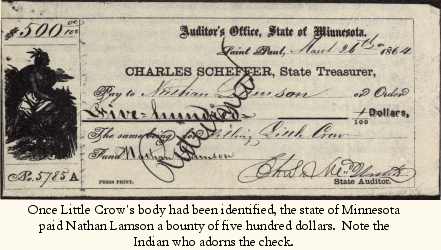 $ 500 00/100
Auditor's Office, State of Minnesota.
Saint Paul, March 26th 1864
CHARLES SCHEFFER, State Treasurer,
Pay to Nathan Lamson or Order
Five-hundred Dollars,
100
The same being killing Little Crow
Fund Nathan Lamson
No. 5785 A
PRESS PRINT.
State Auditor.
Once Little Crow's body had been identified, the state of Minnesota
paid Nathan Lamson a bounty of five hundred dollars. Note the
Indian who adorns the check.